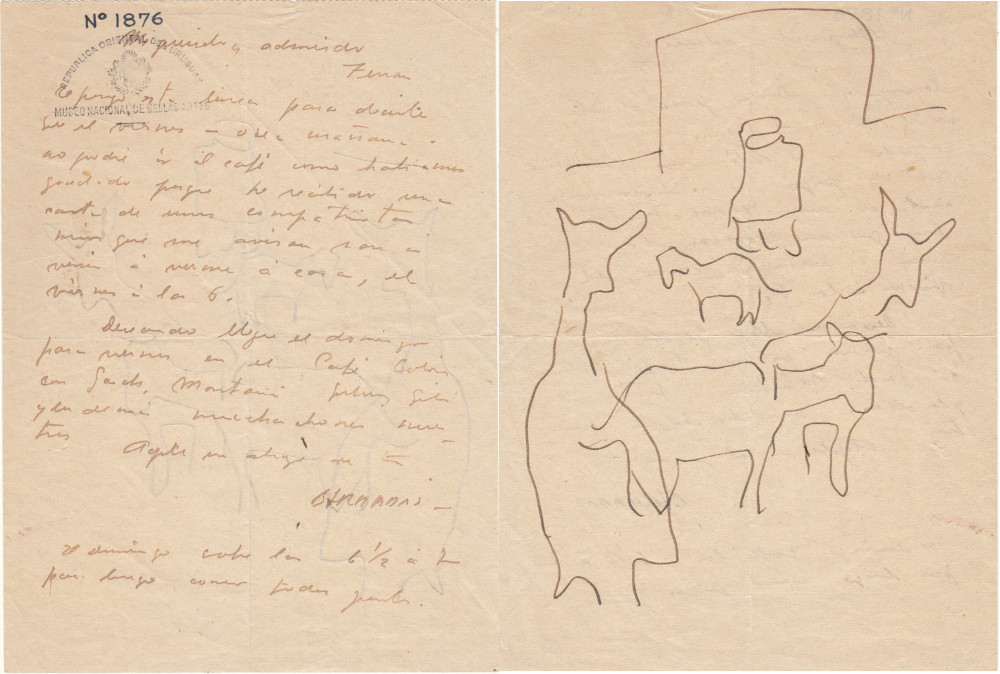 Nº 1876
REPUBLICA ORIENTAL DEL URUGUAY
MUSEO NACIONAL DE BELLAS ARTES
Mi querido y admirado
Te pongo esta línea para decirte
que el viernes – o sea mañana –
no podré ir al café como habíamos
quedado porque he recibido una
carta de unos compatriotas
míos que me avisan van a
venir à verme à casa, el
viernes à las 6.
Deseando llegue el domingo
para vernos en el Café Colón
con Montaña
y los demás muchachones nues-
tros
un abrazo de tu
BARRADAS –
El domingo sobre las 6 1/2 à 7
para luego cenar todos juntos.